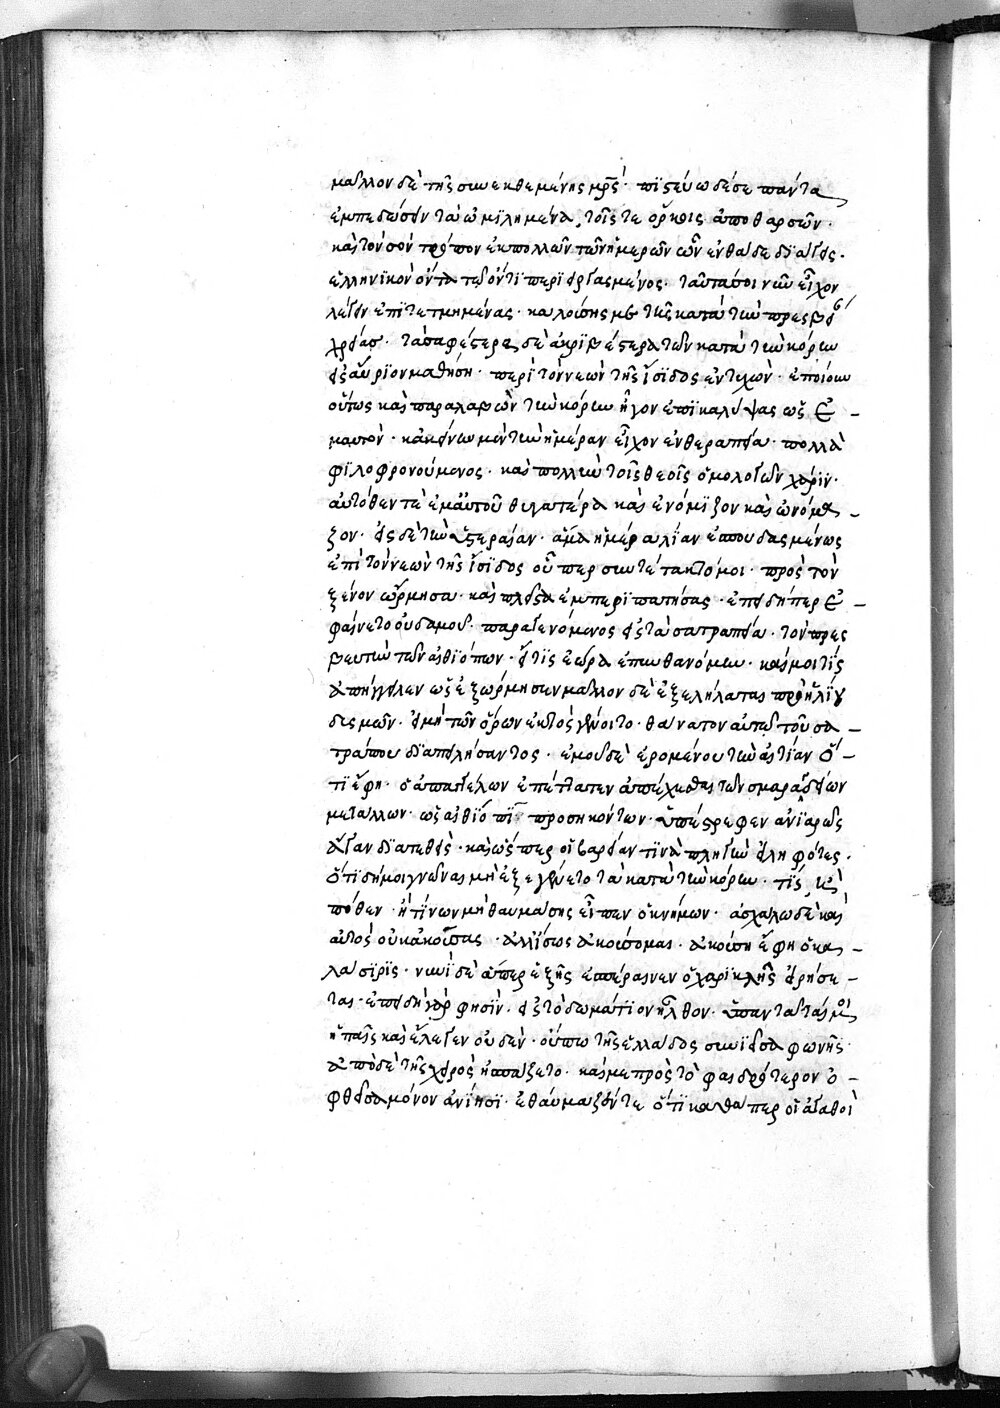 μᾶλλον δὲ τῆς συνεκθεμένης μρ̅ς· πιστεύω δέ σε πάντα
ἐμπεδώσειν τὰ ὡμιλημένα, τοῖς τε ὅρκοις ἀποθαρσῶν·
καὶ τὸν σὸν τρόπον ἐκ πολλῶν τῶν ἡμερῶν ὧν ἐνθάδε διάγεις·
ἑλληνικὸν ὄντα τῷ ὄντι περιειργασμένος· ταῦτά σοι νῦν εἶχον
λέγειν ἐπιτετμημένας· καλούσης με τῆς κατὰ τὴν πρεσβεί
χρείας· τὰ σαφέστερα δὲ ἀκριβέστερα τῶν κατὰ τὴν κόρην
εἰς αὔριον μαθήσῃ· περὶ τὸν νεὼν τῆς ἴσιδος ἐντυχών· ἐποίουν
οὕτως καὶ παραλαβὼν τὴν κόρην ἦγον ἐπικαλύψας ὡς ἐ-
μαυτόν· κἀκείνην μὲν τὴν ἡμέραν εἶχον ἐν θεραπείᾳ· πολλὰ
φιλοφρονούμενος· καὶ πολλὴν τοῖς θεοῖς ὁμολογῶν χάριν·
αὐτόθεν τε ἐμαυτοῦ θυγατέρα καὶ ἐνόμιζον καὶ ὠνόμα-
ζον· εἰς δὲ τὴν ὑστεραίαν· ἅμα ἡμέρᾳ λίαν ἐσπουδασμένως
ἐπὶ τὸν νεὼν τῆς ἴσιδος οὗπερ συνετέτακτό μοι· πρὸς τὸν
ξένον ὥρμησα· καὶ πλεῖστα ἐμπεριπατήσας· ἐπειδήπερ ἐ-
φαίνετο οὐδαμοῦ· παραγενόμενος εἰς τὰ σατραπεῖα· τὸν πρεσ
βευτὴν τῶν αἰθιόπων· εἴ τις ἑώρα ἐπυνθανόμην· καί μοί τις
ἀπήγγειλεν ὡς ἐξώρμησεν μᾶλλον δὲ ἐξελήλαται πρὸ ἡλίου
δυσμῶν· εἰ μὴ τῶν ὅρων ἐκτὸς γένοιτο· θάνατον αὐτῷ τοῦ σα-
τράπου διαπειλήσαντος· ἐμοῦ δὲ ἐρομένου τὴν αἰτίαν ὅ-
τι ἔφη· ὁ ἀπαγγέλων ἐπέταττεν ἀπέχεσθαι τῶν σμαραγδείων
μετάλλων· ὡς αἰθιοπί προσηκόντων· ὑπέστρεφεν ἀνιαρῶς
ἄγαν διατεθείς· καὶ ὥσπερ οἱ βαρεῖάν τινα πληγὴν εἰληφότες·
ὅτι δή μοι γνῶναι μὴ ἐξεγένετο τὰ κατὰ τὴν κόρην· τίς, καὶ
πόθεν· ἢ τίνων μὴ θαυμάσῃς εἶπεν ὁ κνήμων· ἀσχάλλω δὲ καὶ
αὐτὸς οὐκ ἀκούσας· ἀλλ' ἴσως ἀκούσομαι· ἀκούσῃ ἔφη ὁ κα-
λάσιρις· νυνὶ δὲ ἅπερ ἑξῆς ἐπέραινεν ὁ χαρικλῆς εἰρήσε-
ται· ἐπειδὴ γάρ φησιν· εἰς τὸ δωμάτιον ἦλθον· ὑπαντᾷ τά μοι
ἡ παῖς καὶ ἔλεγεν οὐδέν· οὔπω τῆς ἑλλάδος συνιεῖσα φωνῆς
ἀπὸ δὲ τῆς χειρὸς ἠσπάζετο· καί με πρὸς τὸ φαιδρότερον ὀ-
φθεῖσα μόνον ἀνίησι· ἐθαύμαζόν τε ὅτι καθάπερ οἱ ἀγαθοὶ